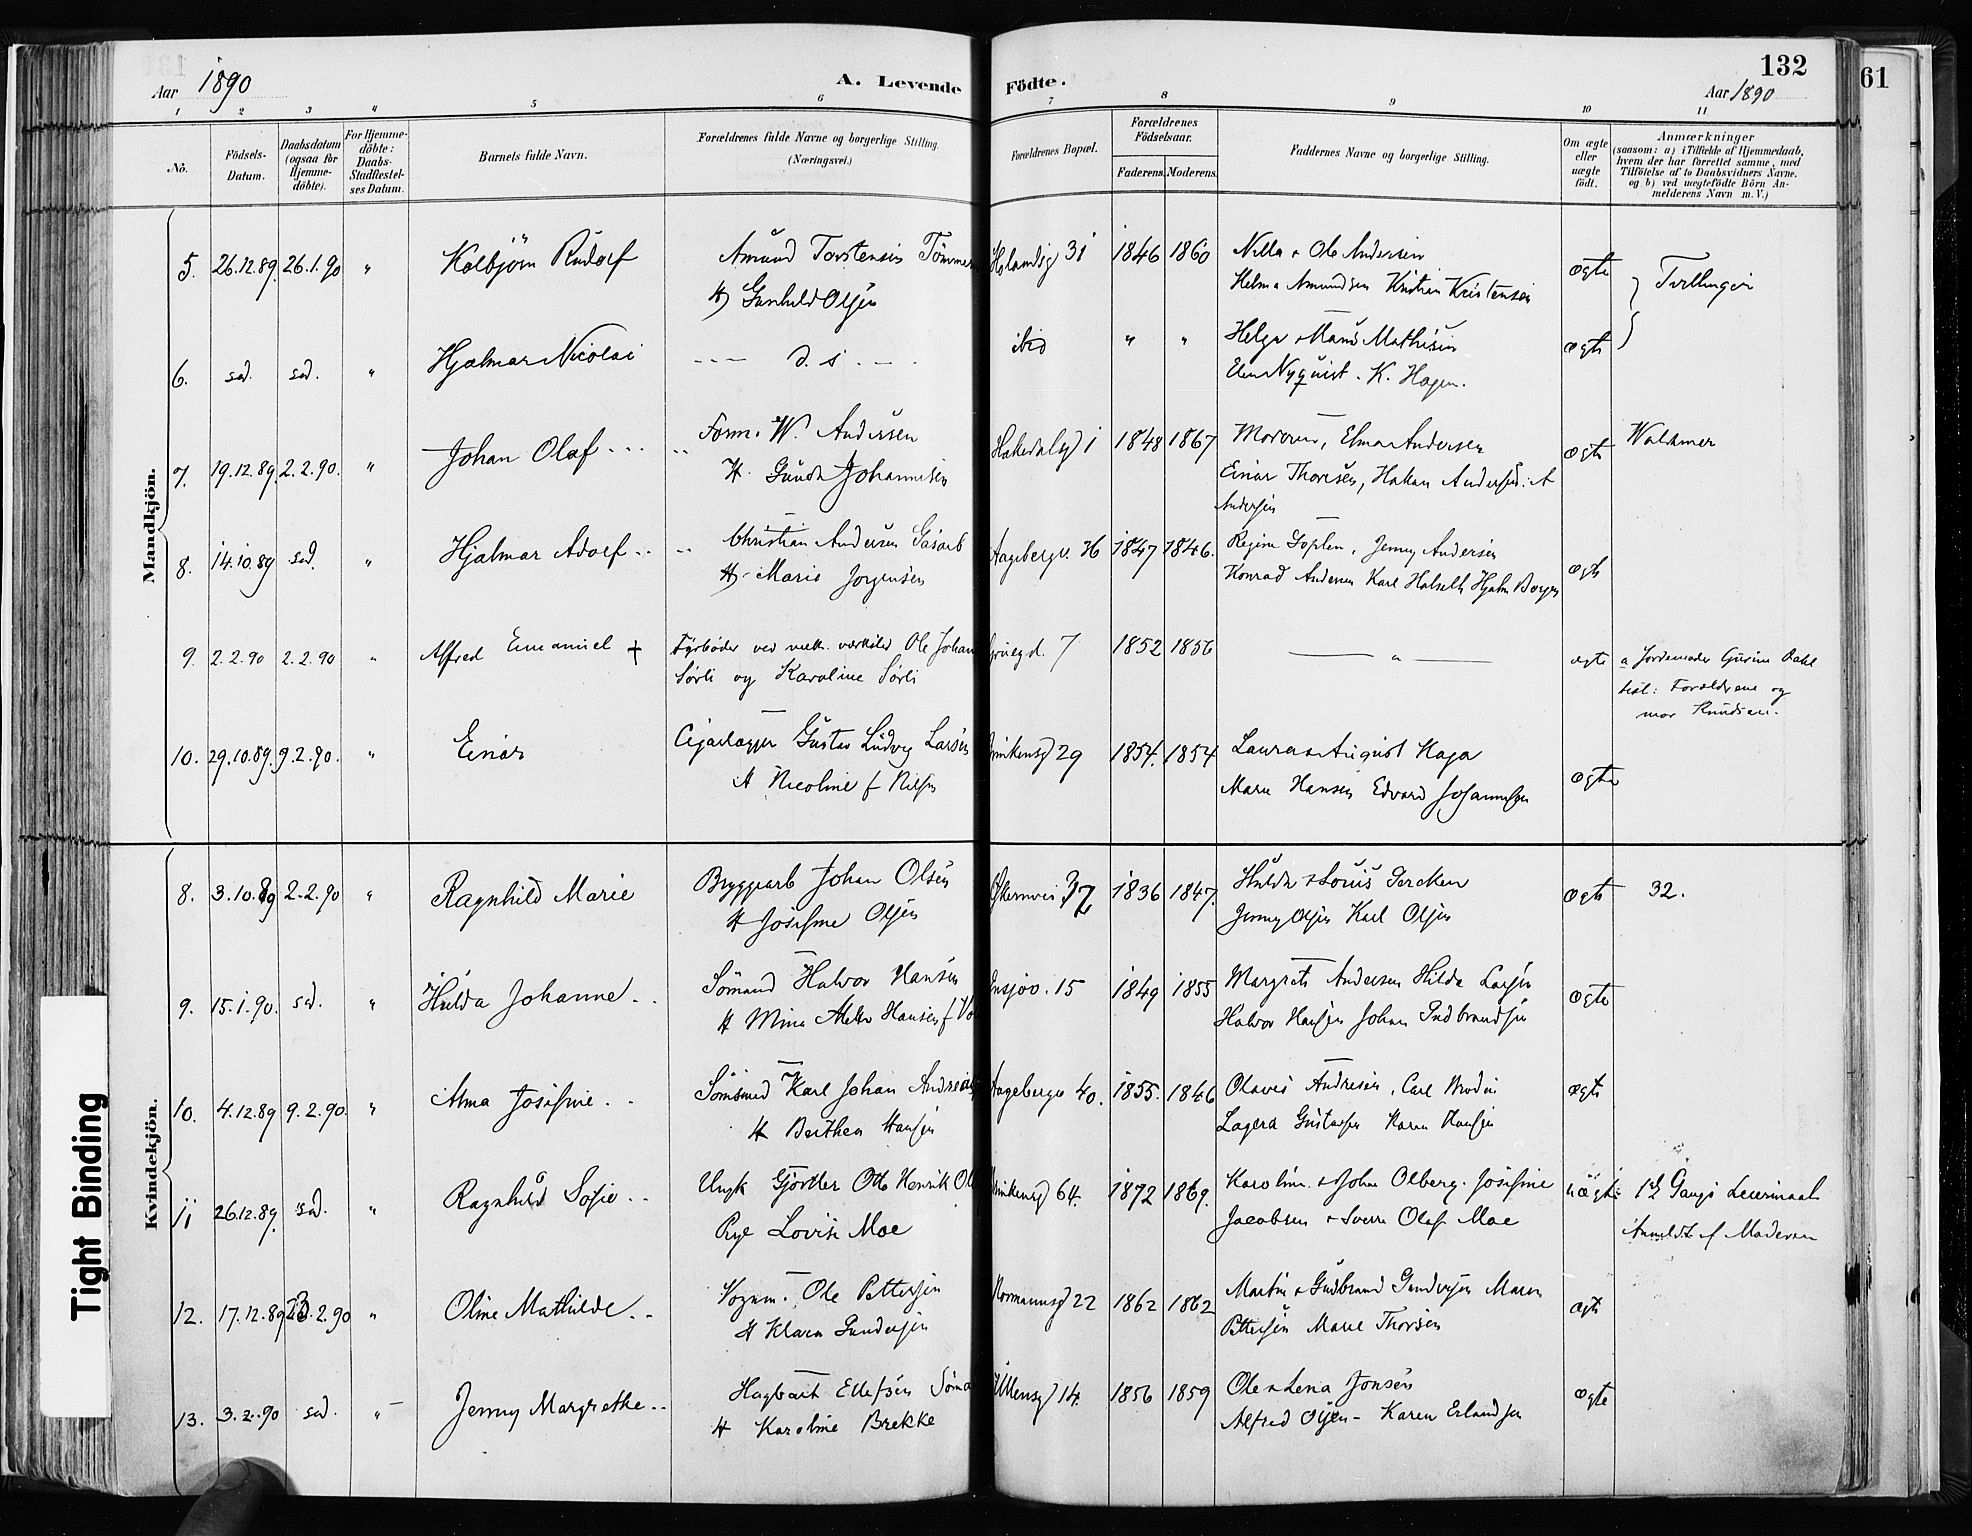 132
61
Aar 1890
A. Levende
Födte.
Aar 1890
1 2 3 4 5 6 7 8 9 10 11
No.
Födsels-Datum.
Daabsdatum (ogsaa for Hjemme-döbte).
For Hjemme-döbte: Daabs-Stadfestel-ses Datum.
Barnets fulde Navn.
Forældrenes fulde Navne og borgerlige Stilling. (Næringsvei.)
Forældrenes Bopæl.
Forældrenes Födselsaar.
Faderens. Moderens.
Faddernes Navne og borgerlige Stilling.
Om ægte eller uægte födt.
Anmærkninger
(saasom: a) i Tilfælde af Hjemmedaab,
hvem der har forrettet samme, med
Tilföielse af to Daabsvidners Navne.
og b) ved uægtefödte Börn An-
melderens Navn m. V.)
Mandkjön.
5. 26.12.89. 26.1.90 " Kolbjörn Rudolf Amund Torstensen 31 1846 1860 Nilla + Ole Andersen ægte Tvillinger
H Gunhild Olsen Helma Amundsen Kristian Kristensen
6. sad. sad. " Hjalmar Nicolai d. s. ibid " " Helga + Mathisen ægte
Elen Nyquist. K. Hagen.
7. 19.12.89. 2.2.90. " Johan Olaf Form. W. Andersen Hakedalsg 1 1848 1867 Moderen, Elma Andersen ægte Waldemar
H. Gunda Johannesen Einar Thoresen, Hakan Andersen. A
Andersen
8. 14.10.89 sad. " Hjalmar Adolf Christian Andersen Gasarb Aagebergv. 36 1847 1846. Regine Soplen, Jenny Andersen ægte
H. Marie Jorgensen Konrad Andersen Karl Holseth Hjalm Borgen
9. 2.2.90 2.2.90 " Alfred Emanuel + Fyrböder ved mek. værksted Ole Johan 7 1852 1856 " ægte a Jordemoder Gurine Dahl
Sørli og Karoline Sørli test: Forældrene og
mor Knudsen.
10. 29.10.89. 9.2.90. " Einar Gustav Ludvig Larsen 29 1854. 1854 Laura + August Haga ægte
H Nicoline f Nilsen Marie Hansen Edvard Johannesen
Kvindekjön.
8. 3.10.89 2.2.90 " Ragnhild Marie Bryggearb Johan Olsen Økernvei 32 1836 1847. Hulda + Louis ægte 32.
H Josefine Olsen Jenny Olsen Karl Olsen
9. 15.1.90. sad. " Hulda Johanne Sömand Halvor Hansen Ensjov. 15 1849 1855 Margrete Andersen Hilda Larsen ægte
H Mina Mette Hansen f Halvor Hansen Johan Gudbrandsen
10. 4.12.89 9.2.90. " Alma Josefine Karl Johan Aagebergv 40. 1855. 1846 Olavis Andresen, Carl Modin ægte
H Berthea Hansen Lagera Gustavsen Karen Hansen
11 26.12.89. sad. " Ragnhild Sofie Ungk Gjörtler Otto Henrik 64. 1872 1869. Karoline + John Olberg. Josefine uægte 1ste Gangs Leiermaal
Pige Lovise Moe Jacobsen + Sverre Olaf Moe Anmeldt af Moderen
12. 17.12.89 23.2.90 " Oline Mathilde Vognm. Ole Pettersen Normannsg 22 1862 1862 Martin + Gudbrand Gundersen Maren ægte
H Klara Gundersen Pettersen Marie Thorsen
13. 3.2.90 sad. " Jenny Margrethe Hagbart Ellefsen Ullensg 14. 1856 1859 Ole + Lena Jonsen ægte
H Karoline Brekke Alfred Olsen - Karen Erlandsen
Tight Binding